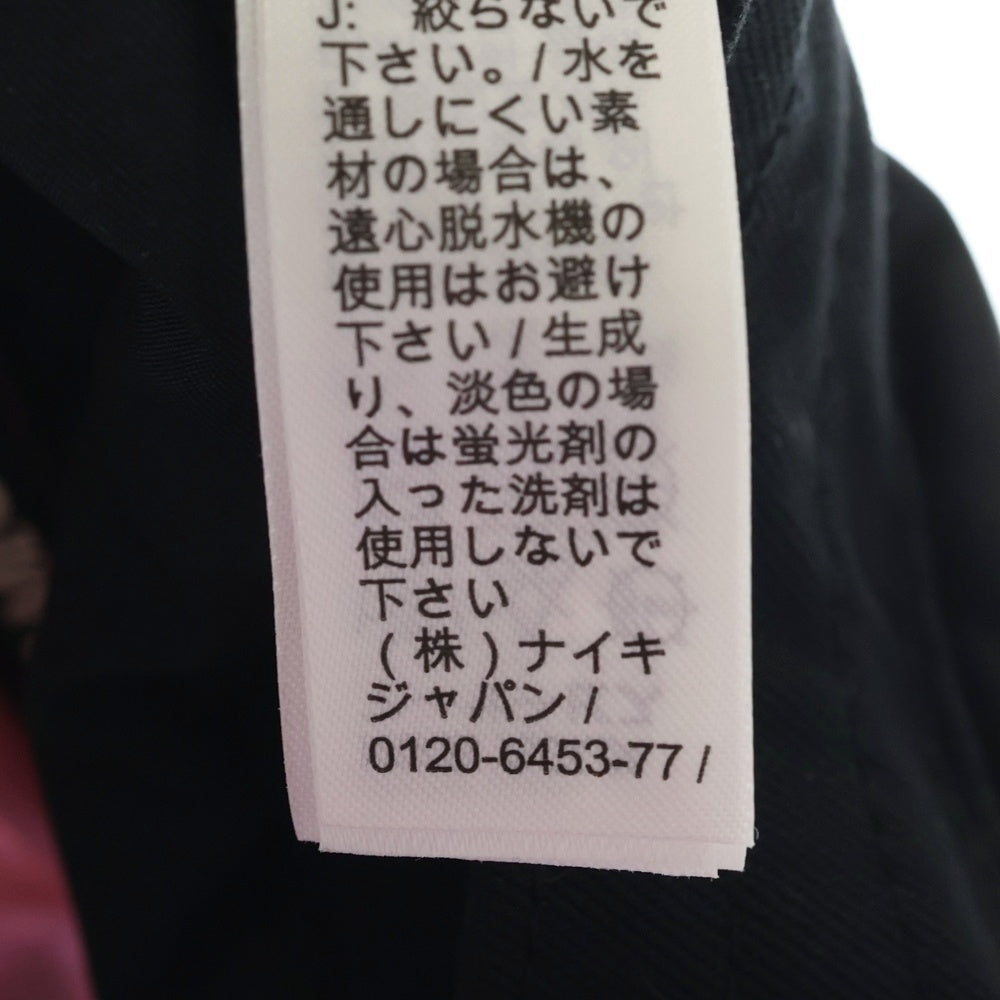 J: 絞らないで
下さい。/ 水を
通しにくい素
材の場合は、
遠心脱水機の
使用はお避け
下さい / 生成
り、淡色の場
合は蛍光剤の
入った洗剤は
使用しないで
下さい
(株)ナイキ
ジャパン /
0120-6453-77 /